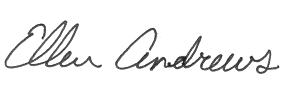 Ellen Andrews